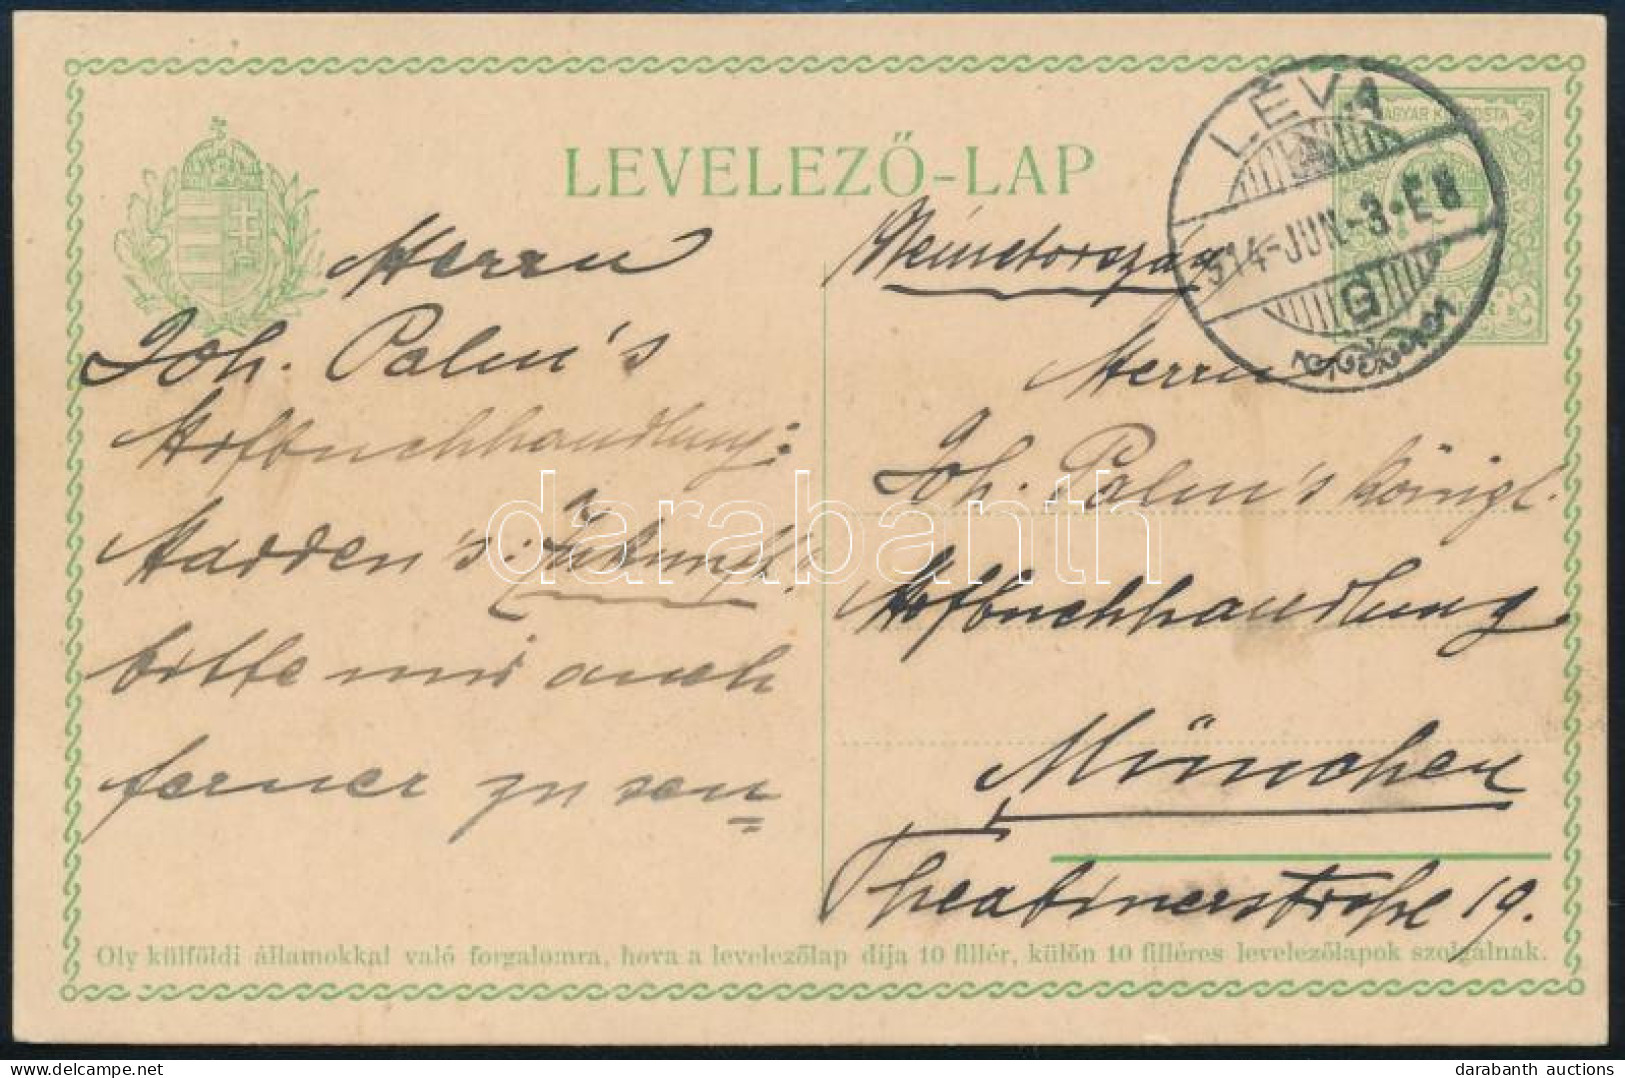 LEVELEZŐ-LAP
MAGYAR KIR. POSTA
LÉVA
914-JUN.-3-E8
G
Herrn
Joh. Palm's
Hofbuchhandlung:
Harden's: Zukunft!
bitte mir auch
ferner zu sen
Németország
Herrn
Joh. Palm's königl.
Hofbuchhandlung
München
Theatinerstraße 19.
Oly külföldi államokkal való forgalomra, hova a levelezőlap dija 10 fillér, külön 10 filléres levelezőlapok szolgálnak.
darabanth
darabanth auctions